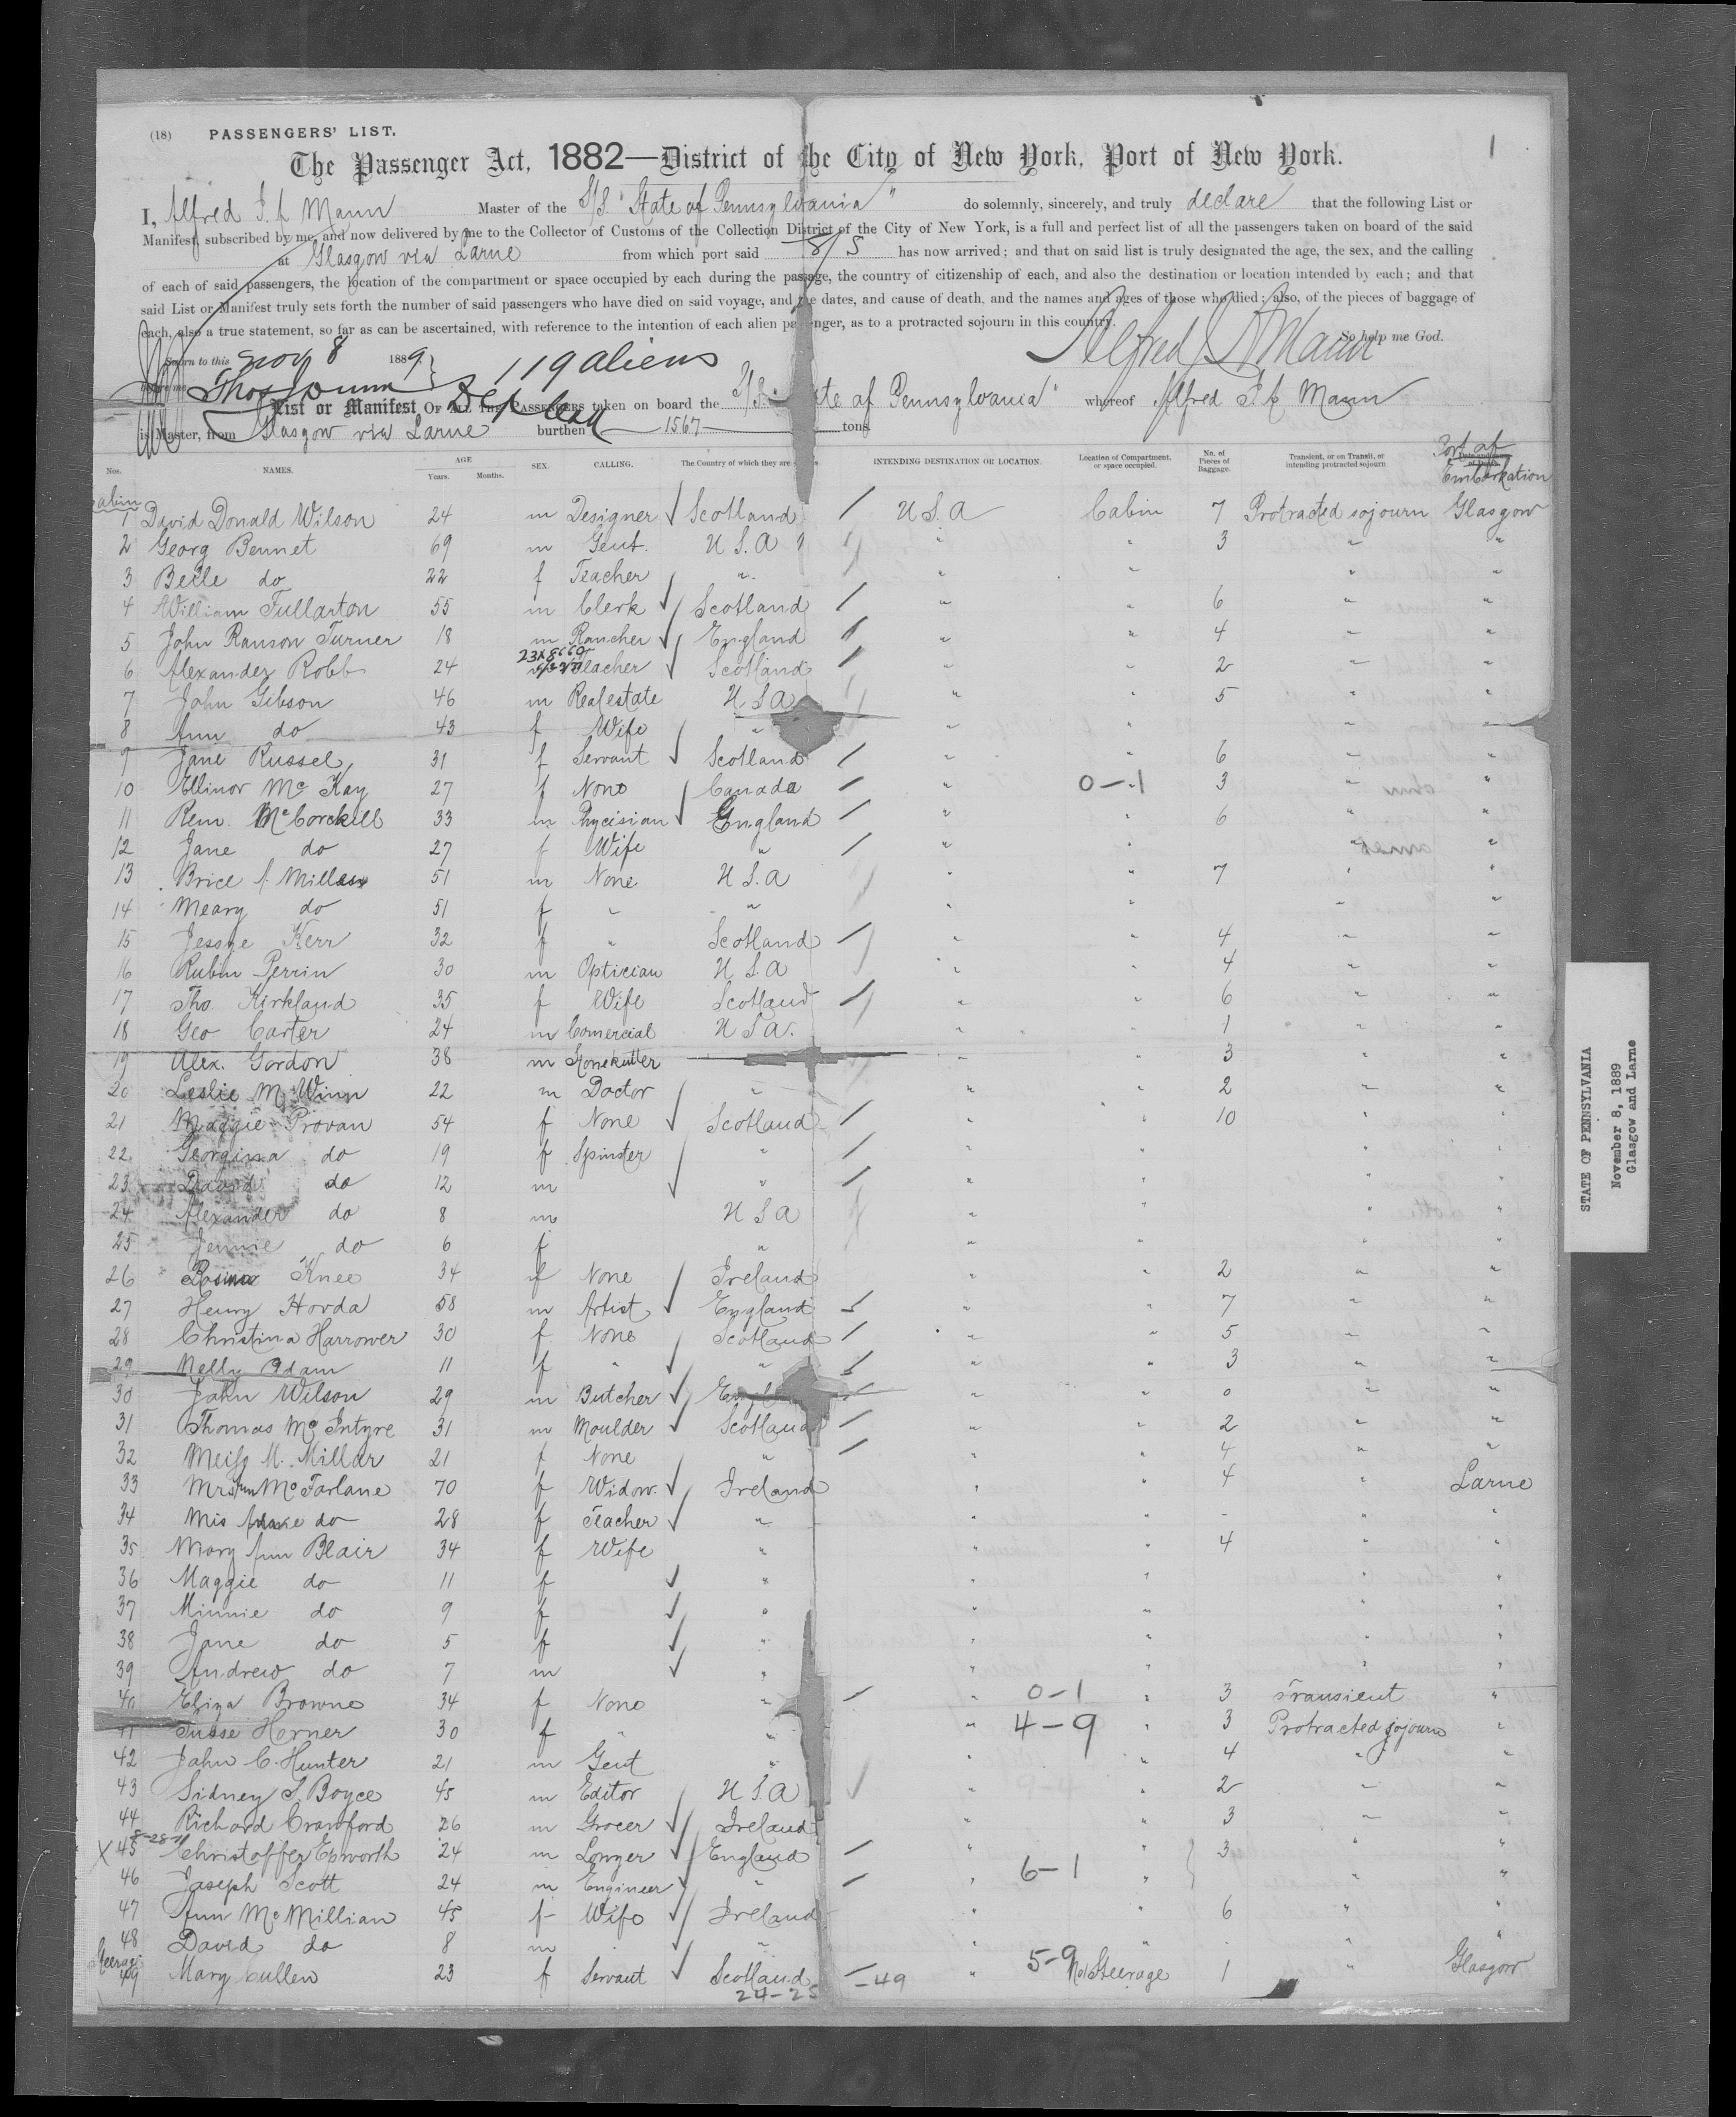 (18) PASSENGERS' LIST. 1
The Passenger Act, 1882—District of the City of New York, Port of New York.
I, Alfred Mann Master of the S/S. "State of Pennsylvania" do solemnly, sincerely, and truly declare that the following List or
Manifest, subscribed by me, and now delivered by me to the Collector of Customs of the Collection District of the City of New York, is a full and perfect list of all the passengers taken on board of the said
at Glasgow via Larne from which port said S/S has now arrived; and that on said list is truly designated the age, the sex, and the calling
of each of said passengers, the location of the compartment or space occupied by each during the passage, the country of citizenship of each, and also the destination or location intended by each; and that
said List or Manifest truly sets forth the number of said passengers who have died on said voyage, and the dates, and cause of death, and the names and ages of those who died; also, of the pieces of baggage of
each, also a true statement, so far as can be ascertained, with reference to the intention of each alien passenger, as to a protracted sojourn in this country.
So help me God.
Sworn to this Nov 8 1889 119 aliens Alfred Mann
before me Thos Dunn
List or Manifest OF ALL THE PASSENGERS taken on board the S/S. "State of Pennsylvania" whereof Alfred Mann
is Master, from Glasgow via Larne burthen 1567 tons
Nos. NAMES. AGE Years. Months. SEX. CALLING. The Country of which they are INTENDING DESTINATION OR LOCATION. Location of Compartment, or space occupied. No. of Pieces of Baggage. Transient, or on Transit, or intending protracted sojourn Port of Embarkation
Cabin
1 David Donald Wilson 24 m Designer Scotland U.S.A Cabin 7 Protracted sojourn Glasgow
2 Georg Bennet 69 m Gent. U.S.A " " 3 " "
3 Belle do 22 f Teacher " " " " "
4 William Fullarton 55 m Clerk Scotland " " 6 " "
5 John Ranson Turner 18 m Rancher England " " 4 " "
6 Alexander Robb 24 Teacher Scotland " " 2 " "
7 John Gibson 46 m Real estate U.S.A " " 5 " "
8 Ann do 43 f Wife " " " " "
9 Jane Russel 31 f Servant Scotland " " 6 " "
10 Ellinor Mc Kay 27 f None Canada " 0-1 " 3 " "
11 Rem. McCorckell 33 m Phycisian England " " 6 " "
12 Jane do 27 f Wife " " " " "
13 Brice A. Millar 51 m None U.S.A " " 7 " "
14 Meary do 51 f " " " " " "
15 Jessye Kerr 32 f " Scotland " " 4 " "
16 Rubin Perrin 30 m Optician U.S.A " " 4 " "
17 Tho. Kirkland 35 f Wife Scotland " " 6 " "
18 Geo Carter 24 m Comercial U.S.A. " " 1 " "
19 Alex. Gordon 38 m Stonekutter " " 3 " "
20 Leslie M. Winn 22 m Doctor " " " 2 " "
21 Maggie Provan 54 f None Scotland " " 10 " "
22 Georgina do 19 f Spinster " " " " "
23 David do 12 m " " " " "
24 Alexander do 8 m U.S.A " " " "
25 Jennie do 6 f " " " " "
26 Knee 34 f None Ireland " " 2 " "
27 Henry Hovda 58 m Artist England " " 7 " "
28 Christina Harrower 30 f None Scotland " " 5 " "
29 Nelly Adam 11 f " " " " 3 " "
30 John Wilson 29 m Butcher " " 0 " "
31 Thomas Mc Intyre 31 m Moulder Scotland " " 2 " "
32 M. Millar 21 f None " " " 4 " "
33 Mrs Ann McFarlane 70 f Widow. Ireland " " 4 " Larne
34 Mis do 28 f Teacher " " " - " "
35 Mary Ann Blair 34 f Wife " " " 4 " "
36 Maggie do 11 f " " " " "
37 Minnie do 9 f " " " " "
38 Jane do 5 f " " " " "
39 Andrew do 7 m " " " " "
40 Eliza Browne 34 f None " " 0-1 " 3 Transient "
41 Tusse Horner 30 f " " " 4-9 " 3 Protracted sojourn "
42 John C. Hunter 21 m Gent " " " 4 " "
43 Sidney S. Boyce 45 m Editor U.S.A " " 2 " "
44 Richard Crawford 26 m Grocer Ireland " " 3 " "
X 45 Christoffer Epworth 24 m England " " 3 " "
46 Joseph Scott 24 m Engineer " " 6-1 " " "
47 Ann McMillian 45 f Wife Ireland " " 6 " "
48 David do 8 m " " " " "
Steerage
49 Mary Cullen 23 f Servant Scotland -49 " 5-9 No1 Steerage 1 " Glasgow
24-25
STATE OF PENNSYLVANIA
November 8, 1889
Glasgow and Larne